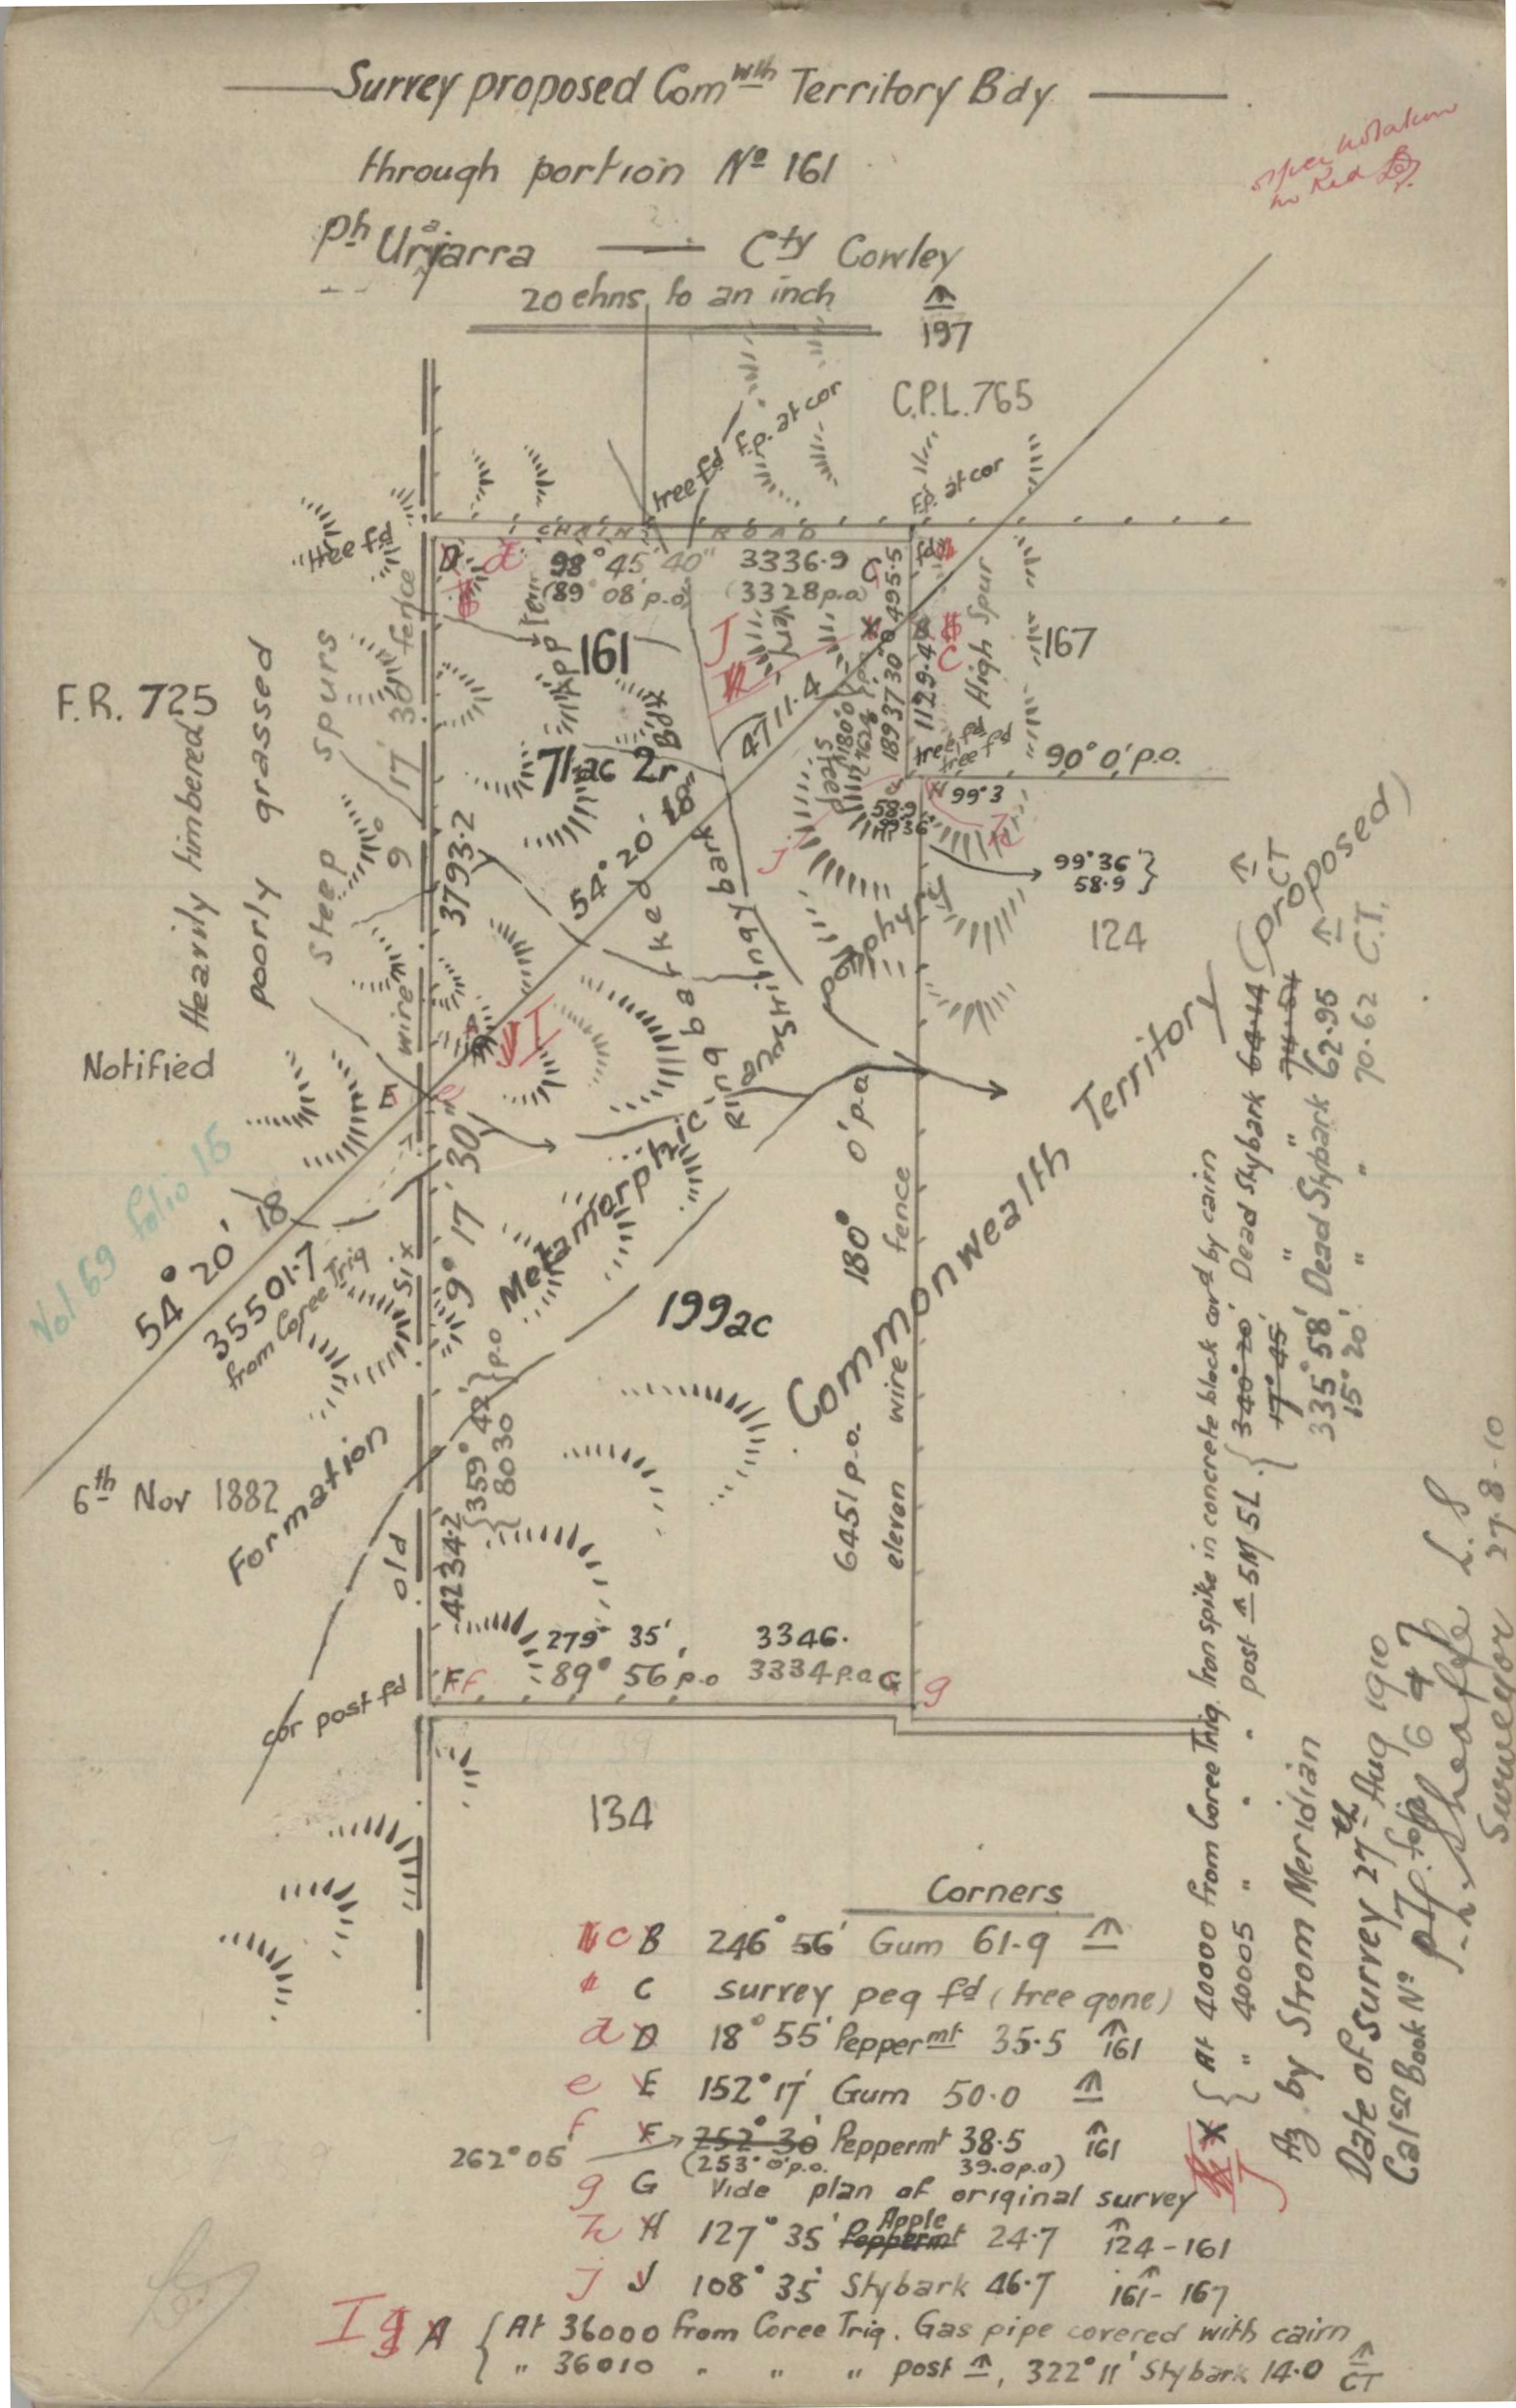 Survey proposed Com wth Territory Bdy
through portion Nº 161
ph Urayarra — Cty Cowley
20 chns to an inch
197
C.P.L. 765
tree fd f.p. at cor
at cor
CHAIN ROAD
tree fd
D d 98° 45' 40" 3336.9 C
(89° 08' p.o) (3328 p.o)
495.5
fd
161
J
Very
C
1129.4
189 37 30
High Spur
167
F.R. 725
Heavily timbered
poorly grassed
Steep spurs
4711.4
71ac 2r
Steep
tree fd
tree fd
90° 0' p.o.
99° 3
58.9
99 36
99° 36' }
58.9 }
124
3793.2
9° 17' 30"
fence
wire
54° 20' 18"
Ringbarked
Stringybark
porphyry
A
I
Notified
E e
Vol 69 folio 15
54° 20' 18"
35501.7
from Coree Trig
six
9° 17' 30"
Metamorphic
Formation
199ac
180° 0' p.o
fence
wire
eleven
6451 p.o.
Commonwealth Territory (proposed)
6th Nov 1882
old
4234.2
{359° 42'} p.o
8030
279° 35' 3346.
89° 56' p.o 3334 p.o G g
F f
cor post fd
134
Corners
c B 246° 56' Gum 61.9
C survey peg fd (tree gone)
d D 18° 55' Pepper mt 35.5 161
e E 152° 17' Gum 50.0
f F 252° 30' Peppermt 38.5 161
262° 05'
(253° 0' p.o. 39.0 p.o)
g G Vide plan of original survey
h H 127° 35' Peppermt Apple 24.7 124-161
j J 108° 35' Stybark 46.7 161-167
I A { At 36000 from Coree Trig. Gas pipe covered with cairn
" 36010 " " " post, 322° 11' Stybark 14.0 CT
X { At 40000 from Coree Trig. Iron spike in concrete block covd by cairn
J
" 40005 " " " post 5M 5L. { 340° 20' Dead Stybark 64.14 CT
17° 45' " " 74.54
335° 58' Dead Stybark 62.95
15° 20' " " 70.62 C.T.
Az. by Strom Meridian
Date of Survey 27th Aug 1910
Calcn Book Nº folio 6 & 7
P. L. Sheaffe L.S
Surveyor 27-8-10